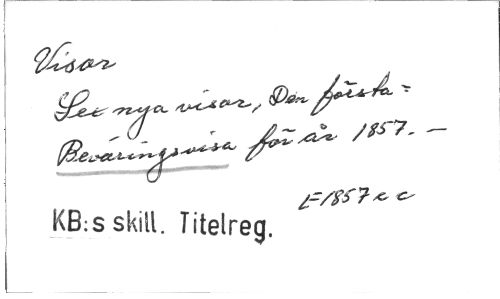 Visor
Sex nya visor, Den första=
Beväringsvisa för år 1857. —
E 1857 c c
KB:s skill. Titelreg.